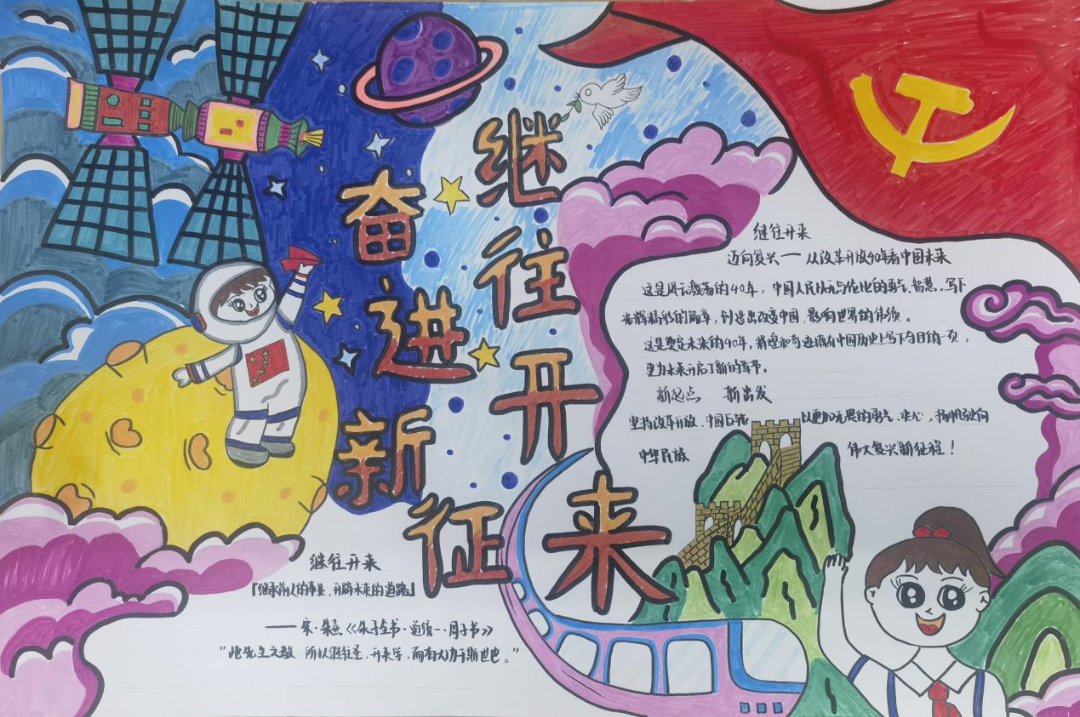 继往开来
奋进新征
继往开来
迈向复兴——从改革开放40年看中国未来
这是风云激荡的40年，中国人民以无与伦比的勇气、智慧，写下
光辉精彩的篇章，创造出改变中国、影响世界的伟绩。
这是奠定未来的40年，辉煌和奇迹将在中国历史上写下夺目的一页，
更为未来开启了新的章节。
新起点 新出发
坚持改革开放，中国 以更加无畏的勇气、决心，扬帆驶向
中华民族 伟大复兴新征程！
继往开来
『继承前人的事业，开辟未来的道路』
——宋·朱熹《朱子全书·道统一·周子书》
“此先生之教，所以继往圣，开来学，而有大功于斯世也。”